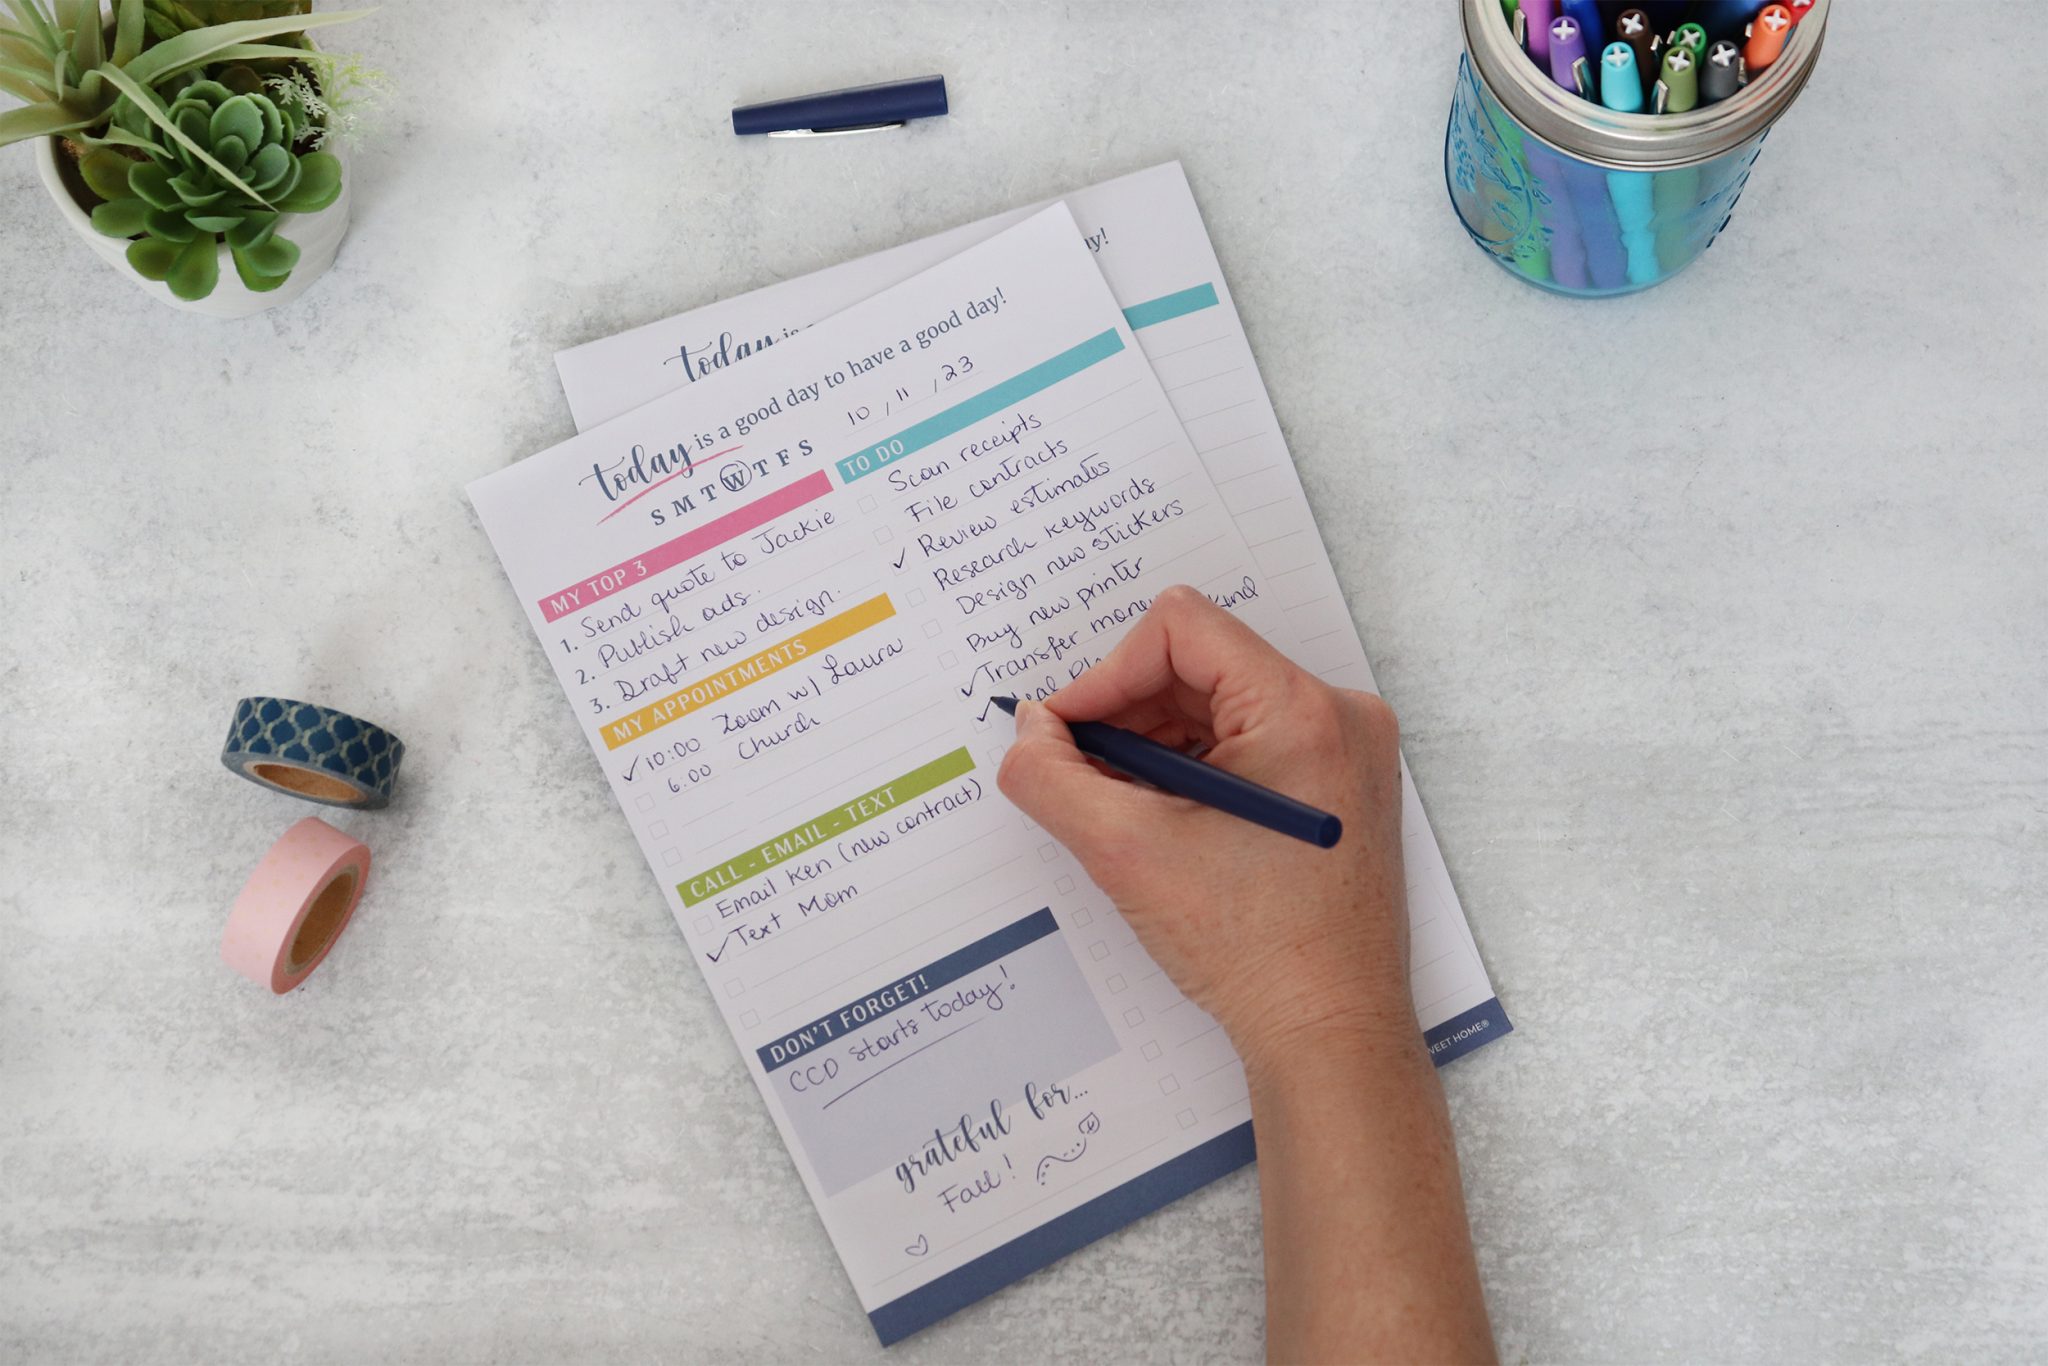 today is
ay!
today is a good day to have a good day!
S M T W T F S
10 , 11 , 23
MY TOP 3
1. Send quote to Jackie
2. Publish ads.
3. Draft new design.
MY APPOINTMENTS
✓ 10:00 Zoom w/ Laura
6:00 Church
CALL - EMAIL - TEXT
Email Ken (new contract)
✓ Text Mom
DON'T FORGET!
CCD starts today!
grateful for...
Fall!
TO DO
Scan receipts
File contracts
✓ Review estimates
Research keywords
Design new stickers
Buy new printer
✓ Transfer money
✓
WEET HOME®